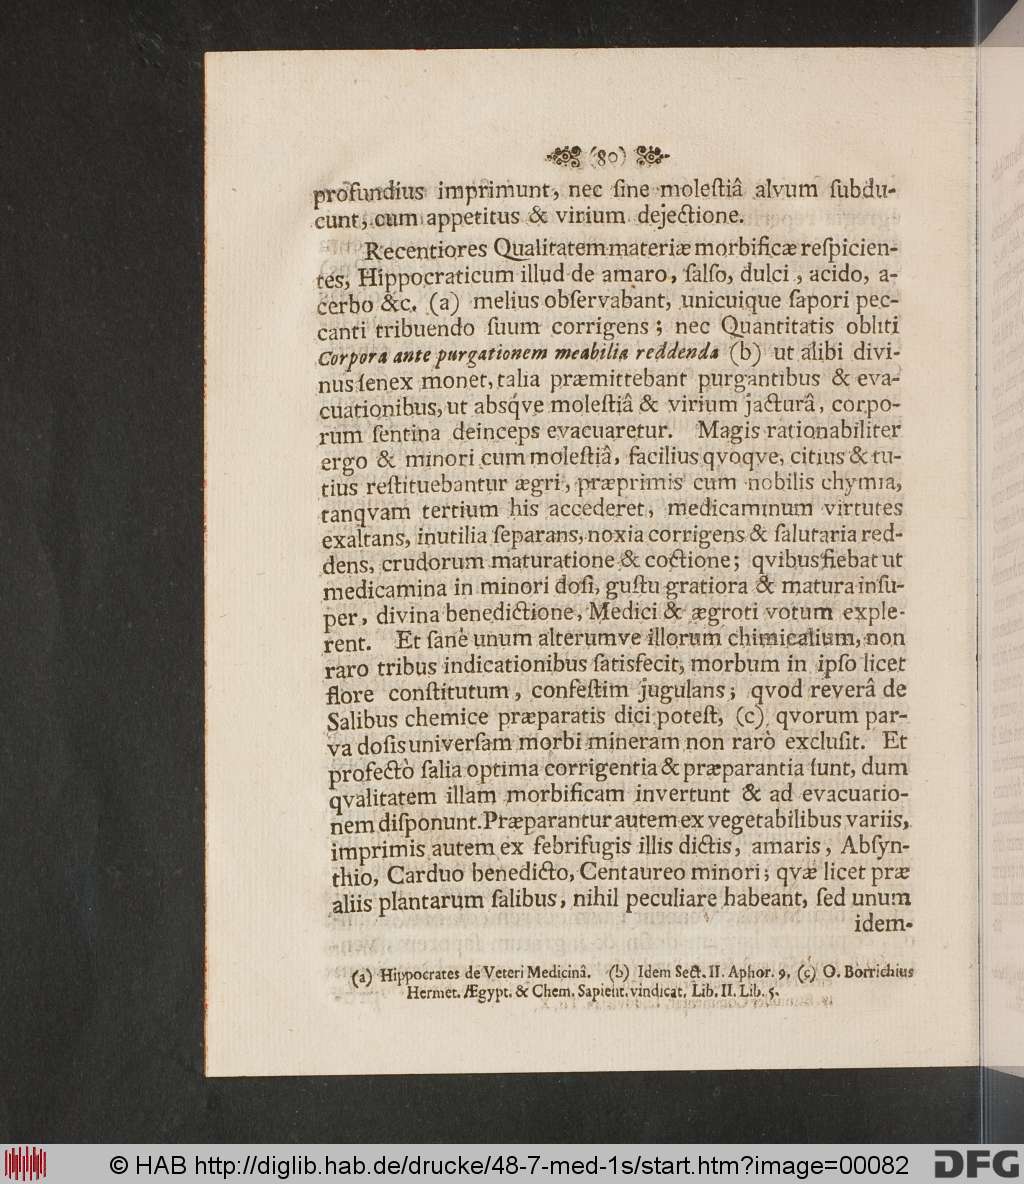 (80)
profundius imprimunt, nec ſine moleſtiâ alvum ſubdu-
cunt, cum appetitus & virium dejectione.
Recentiores Qualitatem materiæ morbificæ reſpicien-
tes, Hippocraticum illud de amaro, ſalſo, dulci, acido, a-
cerbo &c. (a) melius obſervabant, unicuique ſapori pec-
canti tribuendo ſuum corrigens; nec Quantitatis obliti
Corpora ante purgationem meabilia reddenda (b) ut alibi divi-
nus ſenex monet, talia præmittebant purgantibus & eva-
cuationibus, ut absq́ve moleſtiâ & virium jacturâ, corpo-
rum ſentina deinceps evacuaretur. Magis rationabiliter
ergo & minori cum moleſtiâ, facilius qvoqve, citius & tu-
tius reſtituebantur ægri, præprimis cum nobilis chymia,
tanqvam tertium his accederet, medicaminum virtutes
exaltans, inutilia ſeparans, noxia corrigens & ſalutaria red-
dens, crudorum maturatione & coctione; qvibus fiebat ut
medicamina in minori doſi, guſtu gratiora & matura inſu-
per, divina benedictione, Medici & ægroti votum exple-
rent. Et ſanè unum alterumve illorum chimicalium, non
raro tribus indicationibus ſatisfecit, morbum in ipſo licet
flore conſtitutum, confeſtim jugulans; qvod reverâ de
Salibus chemice præparatis dici poteſt, (c) qvorum par-
va doſis univerſam morbi mineram non rarò excluſit. Et
profectò ſalia optima corrigentia & præparantia ſunt, dum
qvalitatem illam morbificam invertunt & ad evacuatio-
nem diſponunt. Præparantur autem ex vegetabilibus variis,
imprimis autem ex febrifugis illis dictis, amaris, Abſyn-
thio, Carduo benedicto, Centaureo minori; qvæ licet præ
aliis plantarum ſalibus, nihil peculiare habeant, ſed unum
idem-
(a) Hippocrates de Veteri Medicinâ. (b) Idem Sect. II. Aphor. 9. (c) O. Borrichius
Hermet. Ægypt. & Chem. Sapient. vindicat. Lib. II. Lib. 5.
© HAB http://diglib.hab.de/drucke/48-7-med-1s/start.htm?image=00082
DFG